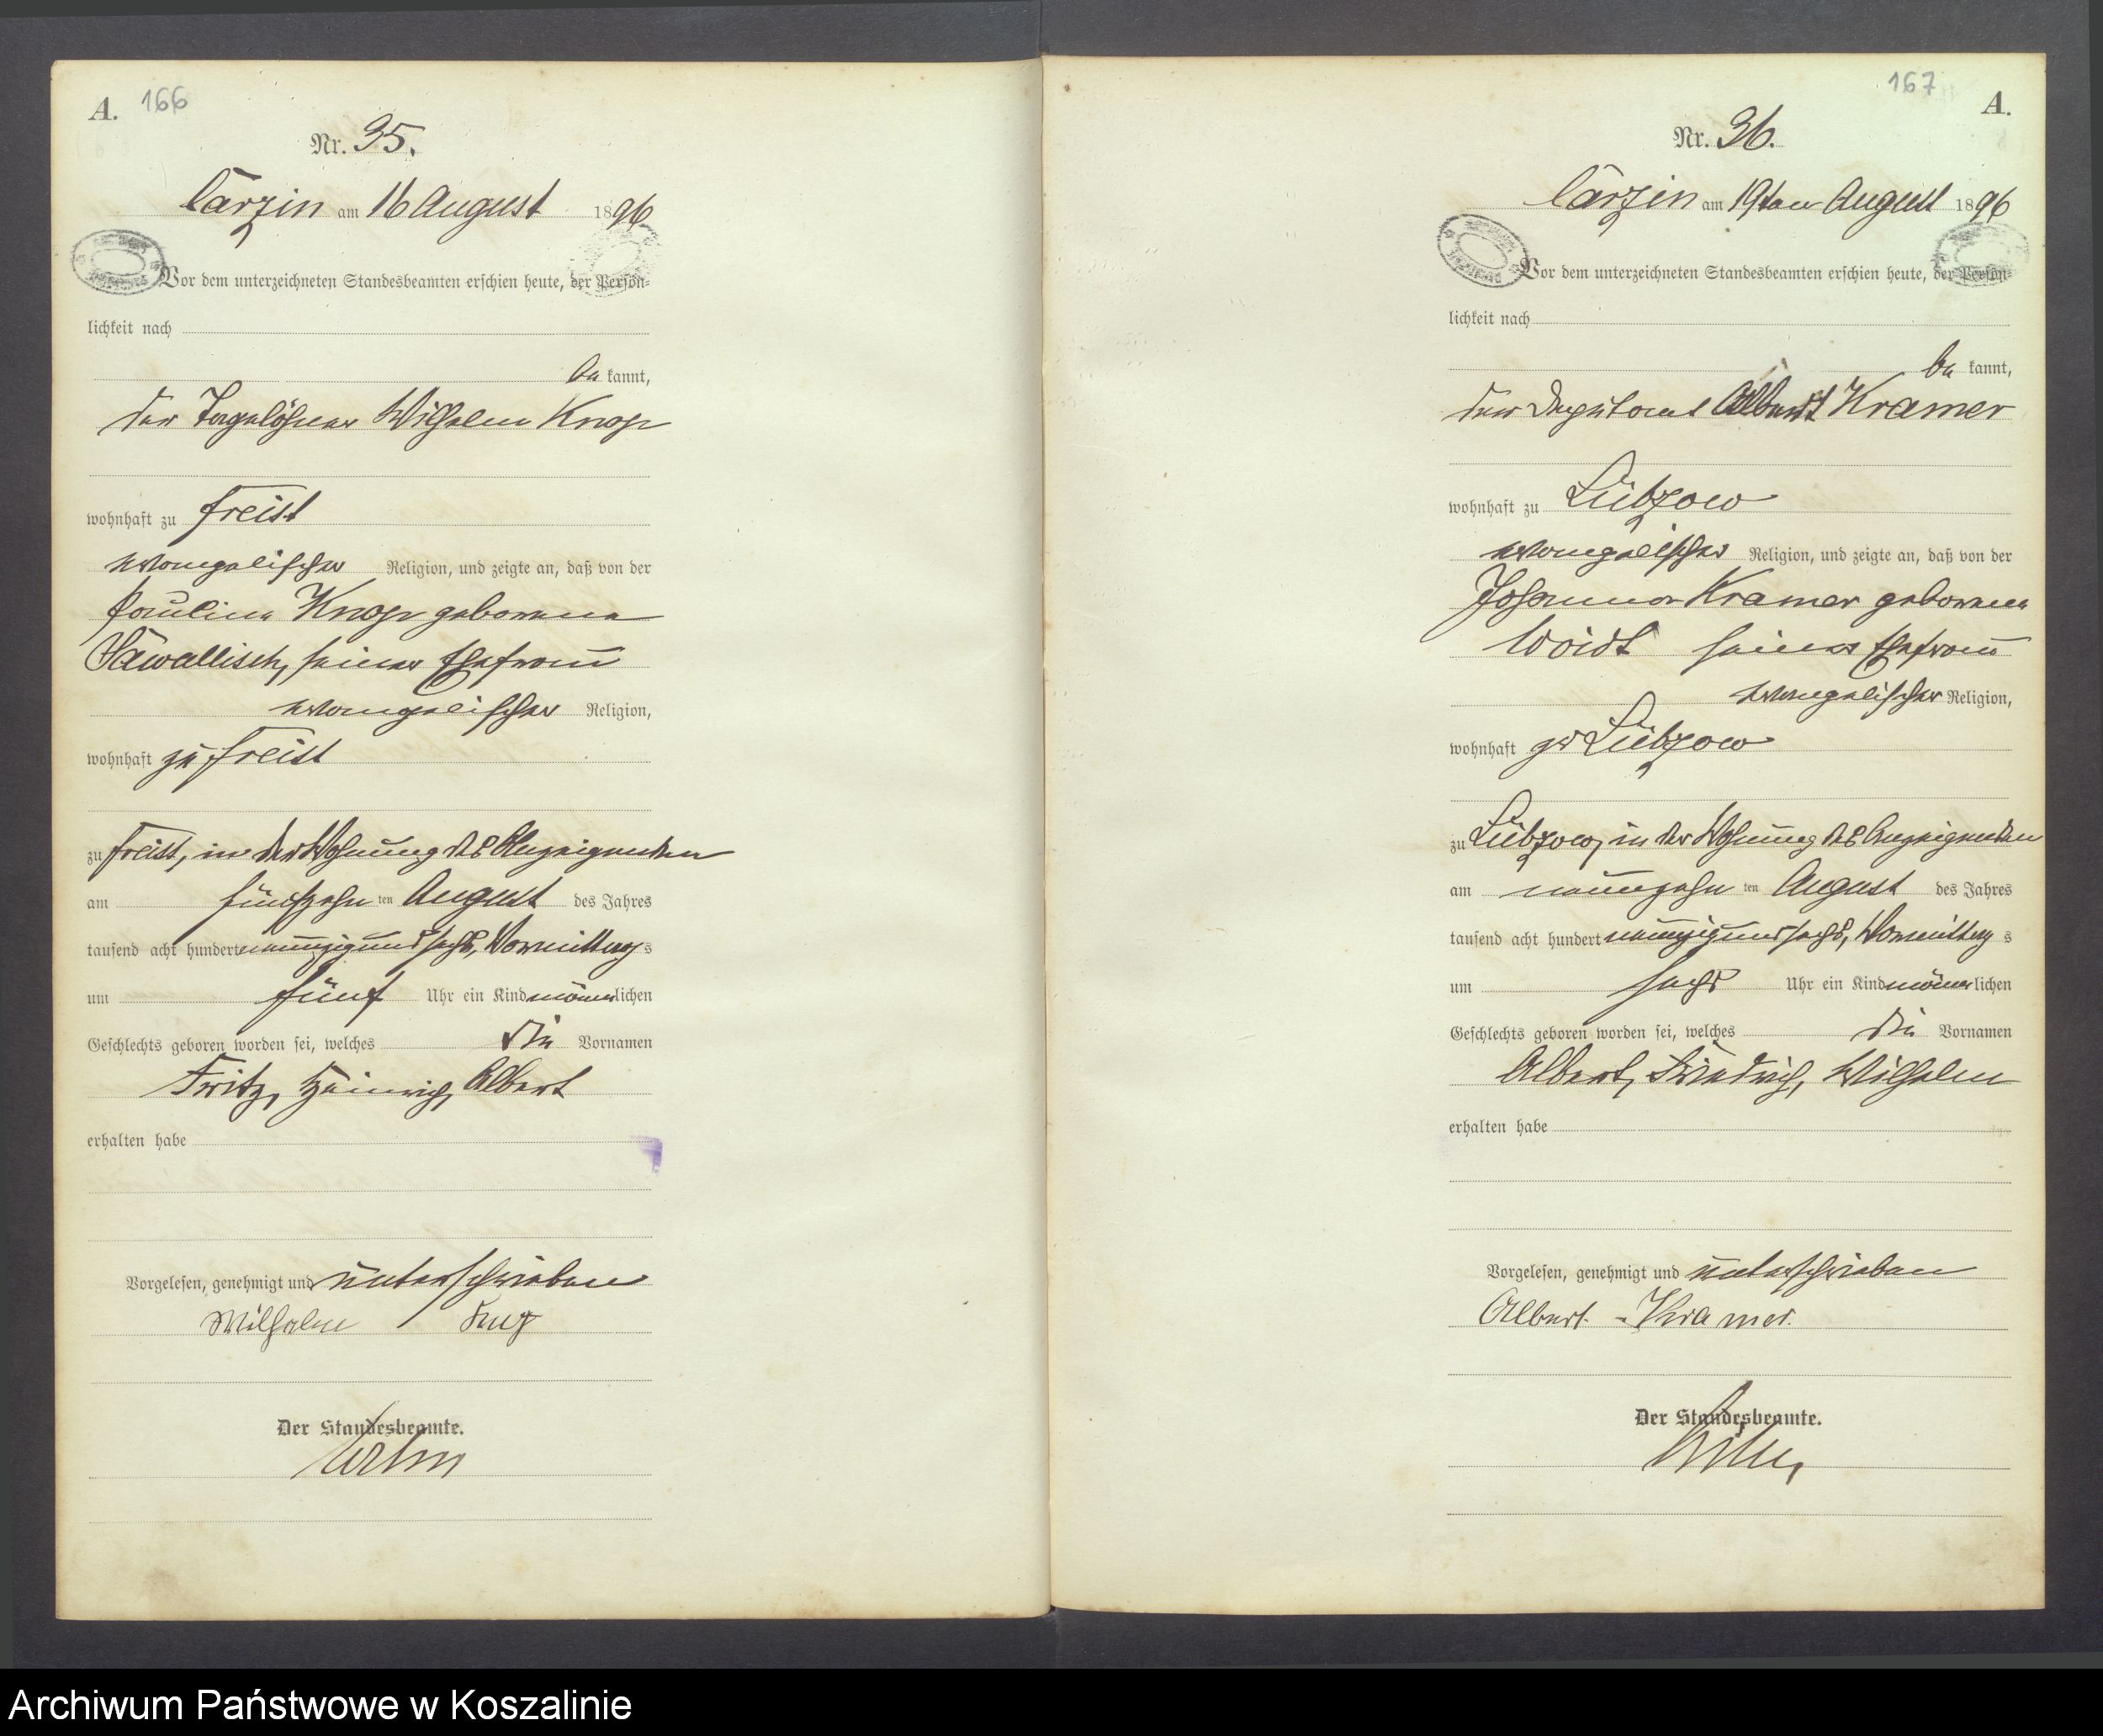 A. 166
Nr. 35.
Carzin am 16 August 1896
Vor dem unterzeichneten Standesbeamten erschien heute, der Persön-
lichkeit nach
be kannt,
der Tagelöhner Wilhelm Knop
wohnhaft zu Freist
evangelischer Religion, und zeigte an, daß von der
Pauline Knop geborene
Sawallisch, seiner Ehefrau
evangelischer Religion,
wohnhaft zu Freist
zu Freist, in der Wohnung des Anzeigenden
am fünfzehn ten August des Jahres
tausend acht hundert neunzig und sechs, Vormittag s
um fünf Uhr ein Kind männlichen
Geschlechts geboren worden sei, welches die Vornamen
Fritz, Heinrich, Albert
erhalten habe
Vorgelesen, genehmigt und unterschrieben
Wilhelm
Der Standesbeamte.
167 A.
Nr. 36.
Carzin am 19ten August 1896
Vor dem unterzeichneten Standesbeamten erschien heute, der Persön-
lichkeit nach
be kannt,
der Deputant Albert Kramer
wohnhaft zu Lübzow
evangelischer Religion, und zeigte an, daß von der
Johanna Kramer geborene
Woidt seiner Ehefrau
evangelischer Religion,
wohnhaft zu Lübzow
zu Lübzow, in der Wohnung des Anzeigenden
am neunzehn ten August des Jahres
tausend acht hundert neunzig und sechs, Vormittag s
um sechs Uhr ein Kind männlichen
Geschlechts geboren worden sei, welches die Vornamen
Albert, Friedrich, Wilhelm
erhalten habe
Vorgelesen, genehmigt und unterschrieben
Albert Kramer.
Der Standesbeamte.
Archiwum Państwowe w Koszalinie